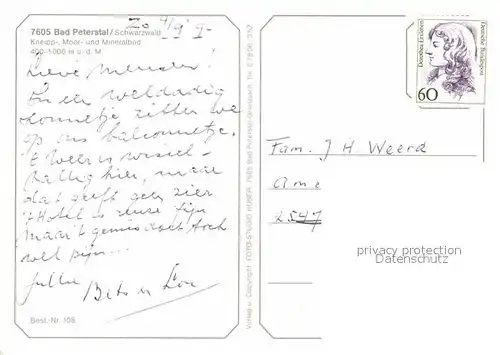 Zo 4/9 9-
7605 Bad Peterstal / Schwarzwald
Kneipp-, Moor- und Mineralbad
400-1000 m ü. d. M.
Lieve
In een weldadig
zonnetje zitten we
op ons balconnetje.
't Weer is wissel-
vallig hier, maar
dat geeft geen zier
't Hotel is reuze fijn
maar 't doet toch
wel pijn...
Jullie
Bets en
Best.-Nr. 108
Verlag u. Copyright: FOTO-STUDIO HUBER, 7605 Bad Peterstal-Griesbach, Tel. 078 06/
Dorothea Erxleben
Deutsche Bundespost
60
Fam. J H Weerd
Ame
2547
privacy protection
Datenschutz